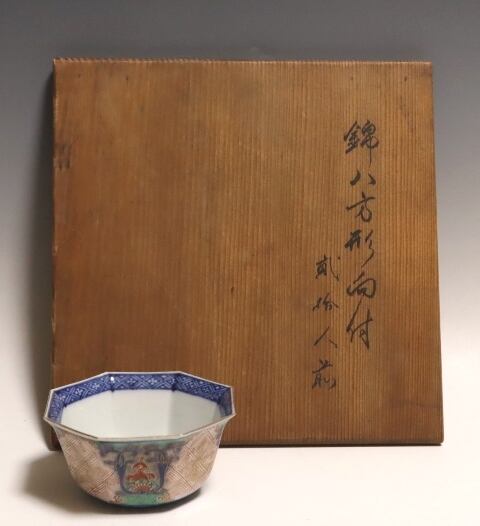 錦八方形向付
貳拾人前